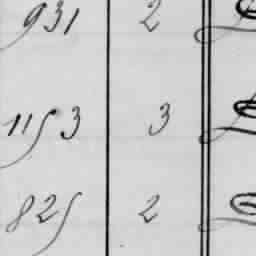 931 2
1153 3
825 2